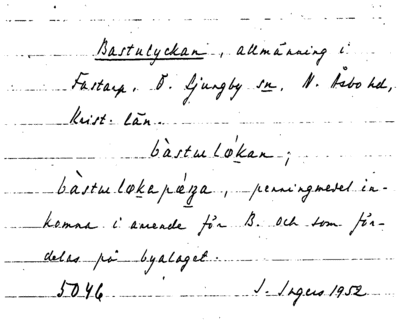 Bastulyckan, allmänning i
Fastarp, Ö. Ljungby sn, N. Åsbo hd,
Krist. län.
bàstuɩlǿkan;
bàstuɩlœkapæŋa, penningmedel in-
komna i arrende för B. och som för-
delas på byalaget.
5046 I. Ingers 1952